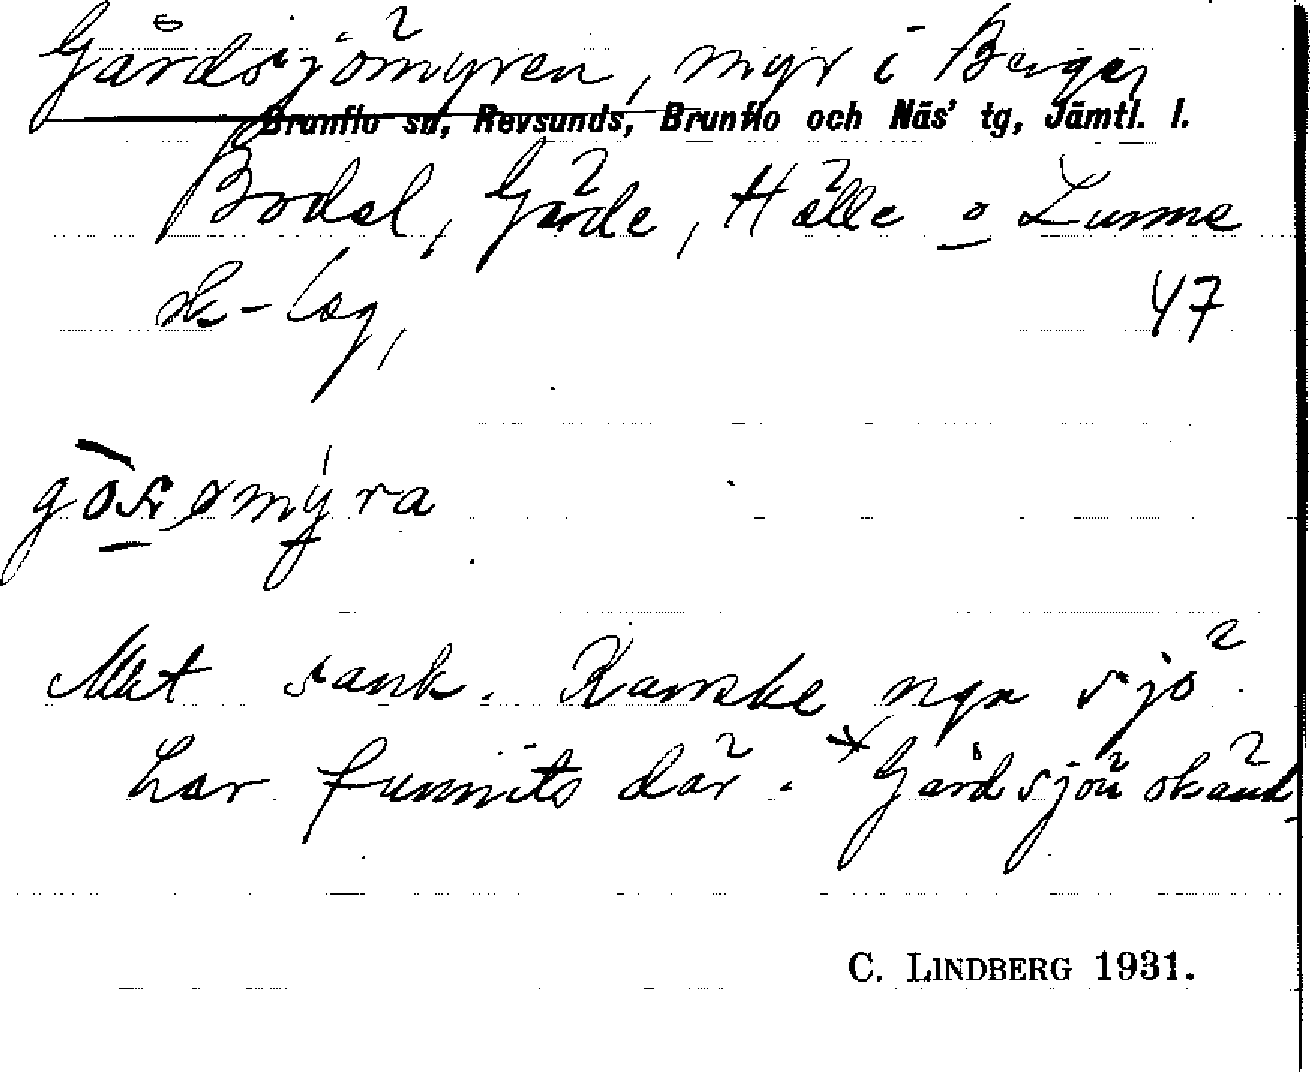 Gårdsjömyren, myr i Berge,
Brunflo sn, Revsunds, Brunflo och Näs' tg, Jämtl. l.
Bodal, Gärde, Hälle o Lunne
sk-lag,
47
Mkt sank. Kanske ngn sjö
har funnits där. *Gårdsjön okänd
C. LINDBERG 1931.